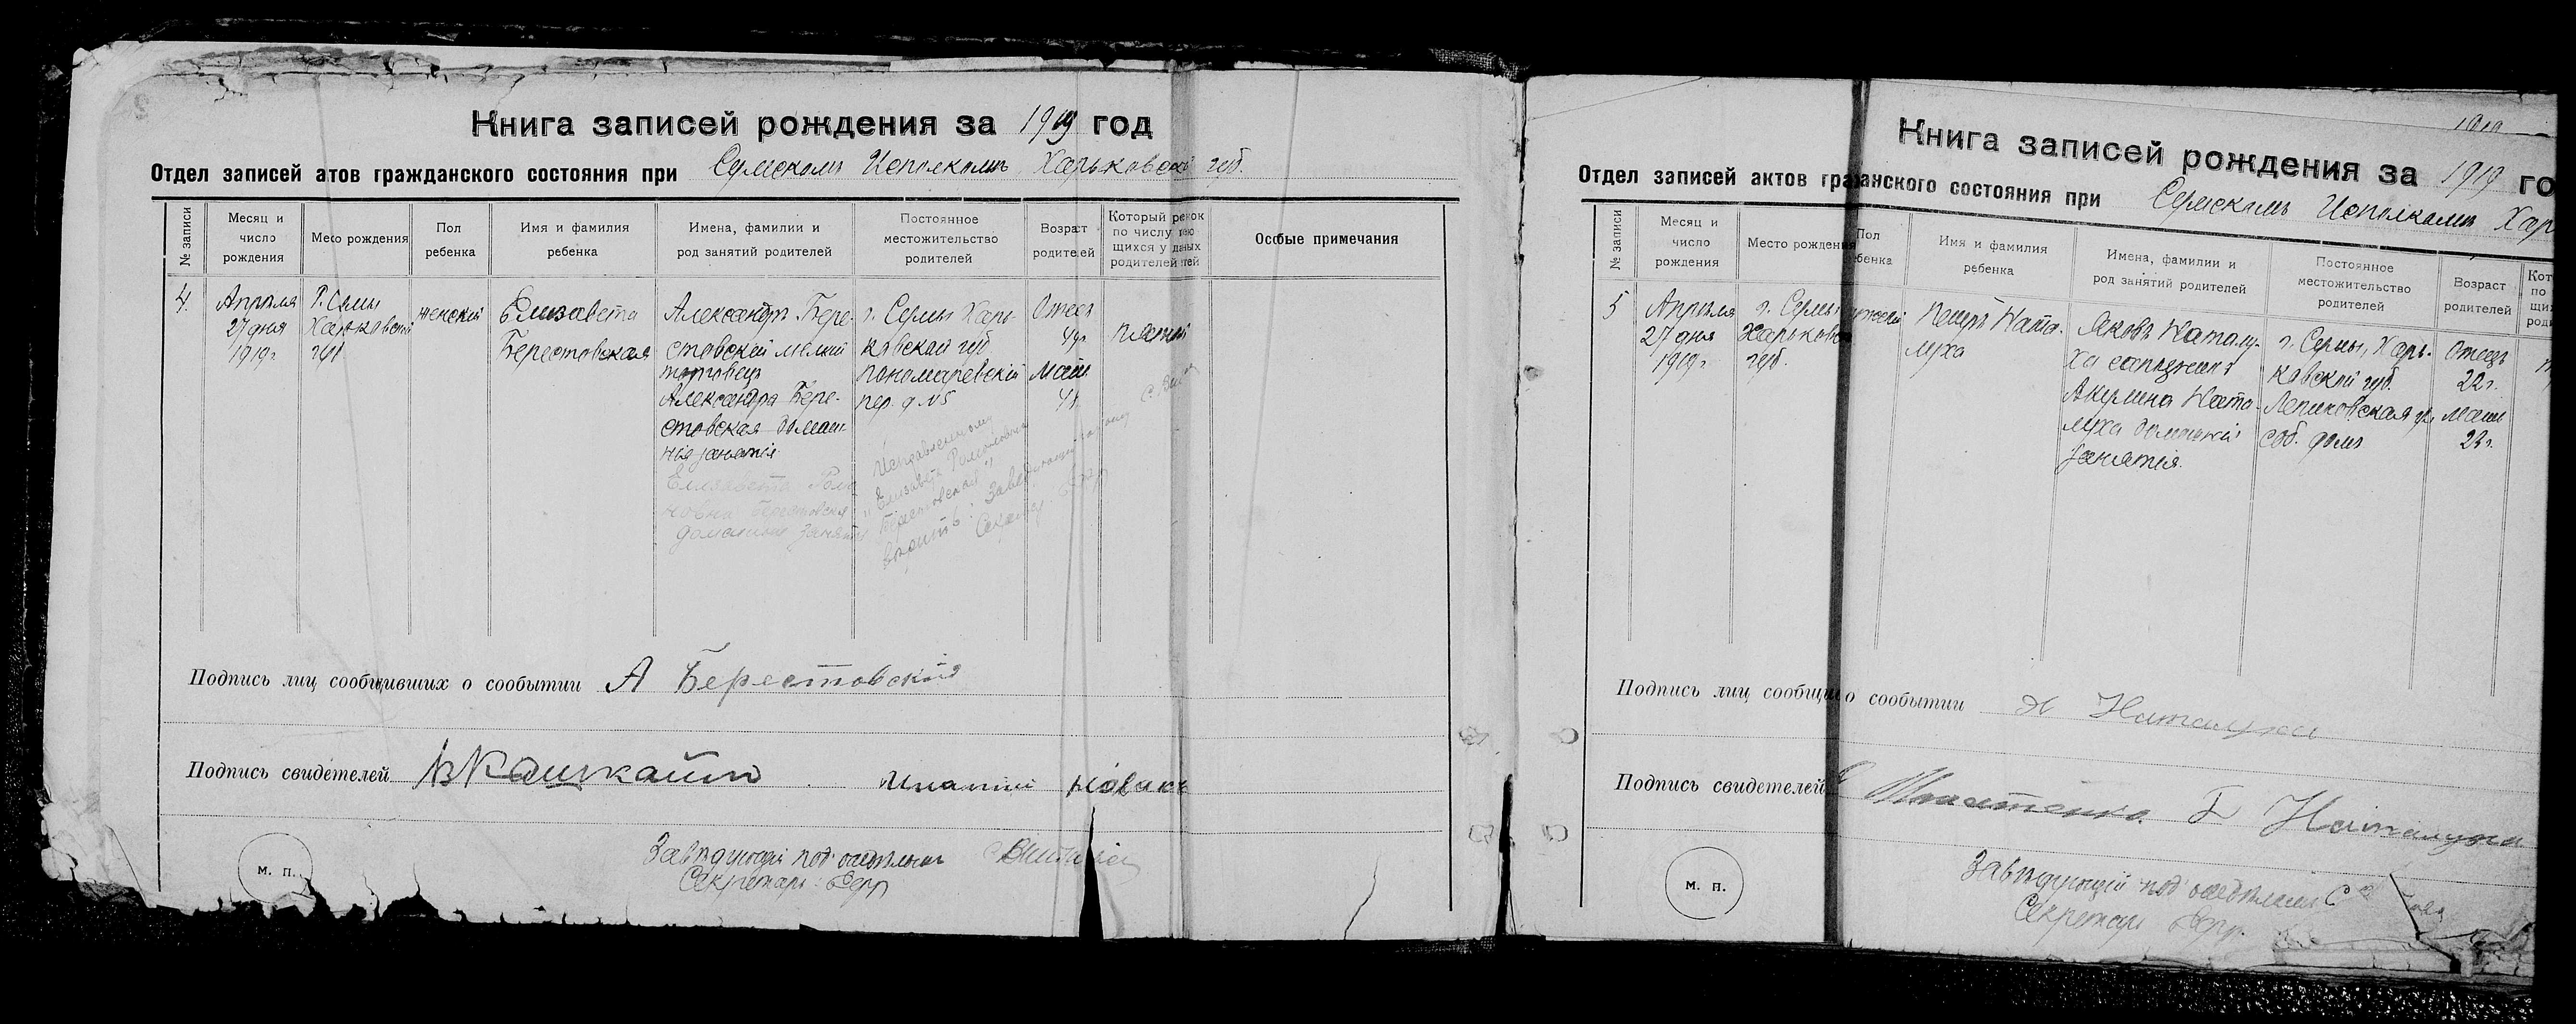 Книга записей рождения за 1919 год
Отдел записей атов гражданского состояния при Сумскомъ Исполкомъ Харьковской губ.
№ записи
Месяц и
число
рождения
Месо рождения
Пол
ребенка
Имя и фамилия
ребенка
Имена, фамилии и
род занятий родителей
Постоянное
местожительство
родителей
Возраст
родителей
Который ребенок
по числу
щихся у данных
родителей
Особые примечания
4.
Апрѣля
27 дня
1919 г.
г. Сумы
Харьковской
губ.
женский
Елизавета
Берестовская
Александръ Бере-
стовский мелкий
торговецъ
Александра Бере-
стовская домаш-
нія занятія
Елизавета
новна Берестовская
домашнія занятія
г. Сумы Харь-
ковской губ
Пономаревский
пер. д №5
Отецъ
Мать
41
пятый
Исправленному
"Елизавета
Берестовская"
вѣрить: Завѣдующий
Секретарь
Подпись лиц сообщивших о сообытии А Берестовский
Подпись свидетелей
м. п.
Завѣдующій под'отдѣломъ
Секретарь
1919
Книга записей рождения за 1919 го
Отдел записей актов гражданского состояния при Сумскомъ Исполкомъ Хар
№ записи
Месяц и
число
рождения
Место рождения
Пол
ребенка
Имя и фамилия
ребенка
Имена, фамилии и
род занятий родителей
Постоянное
местожительство
родителей
Возраст
родителей
Кот
по
щих
роди
5
Апрѣля
27 дня
1919 г.
г. Сумы
Харьковс
губ.
Петръ Ната-
луха
Яковъ Наталу-
ха сапожникъ
Акулина Ната-
луха домашнія
занятія.
г. Сумы, Харь-
ковской губ.
соб. домъ
Отецъ
22 г.
мать
22 г.
Подпись лиц сообщи о сообытии Я Наталуха
Подпись свидетелей
Наталуха
м. п.
Завѣдующій под'отдѣломъ
Секретарь